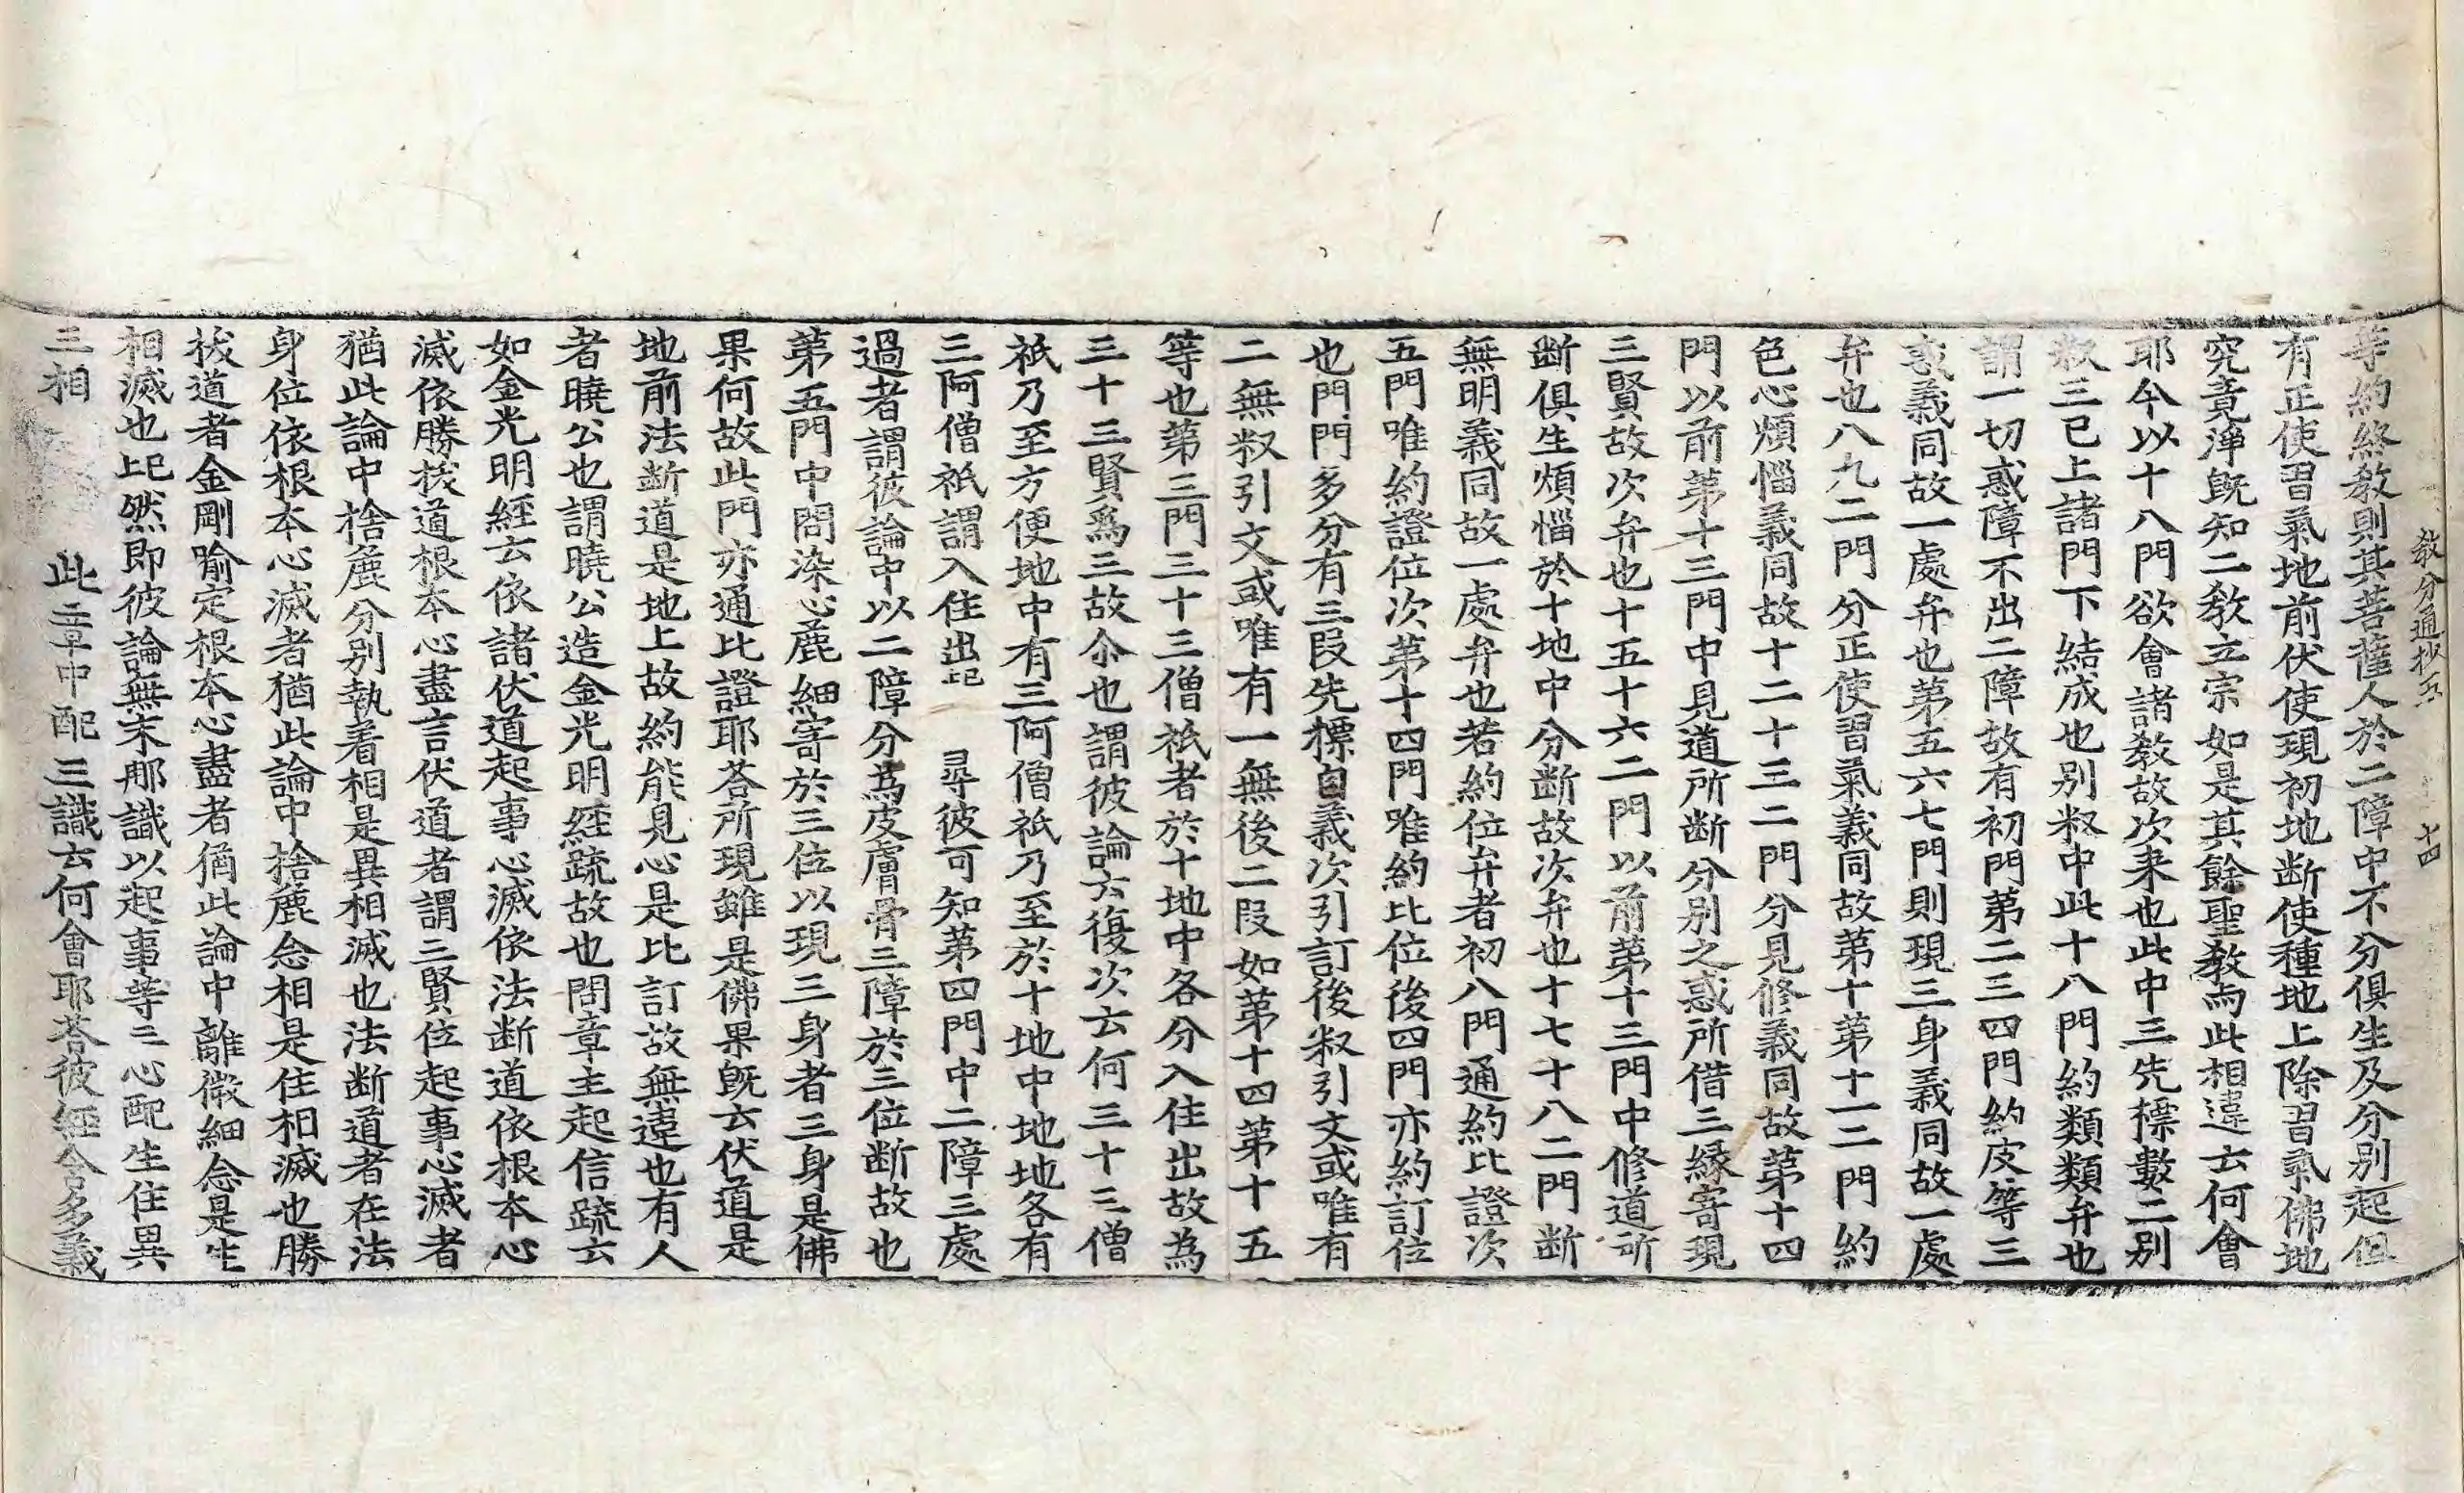 教分通抄五 十四
等約終教則其菩薩人於二障中不分俱生及分別起但
有正使習氣地前伏使現初地断使種地上除習氣佛地
究竟淨旣知二教立宗如是其餘聖教与此相違云何會
耶今以十八門欲會諸教故次来也此中三先標數二別
䆁三已上諸門下結成也別䆁中此十八門約類類弁也
謂一切惑障不出二障故有初門第二三四門約皮等三
惑義同故一處弁也第五六七門則現三身義同故一處
弁也八九二門分正使習氣義同故第十第十一二門約
色心煩惱義同故十二十三二門分見修義同故第十四
門以前第十三門中見道所断分別之惑所借三縁寄現
三賢故次弁也十五十六二門以前第十三門中修道所
断俱生煩惱於十地中分断故次弁也十七十八二門断
無明義同故一處弁也若約位弁者初八門通約比證次
五門唯約證位次第十四門唯約比位後四門亦約訂位
也門門多分有三段先標自義次引訂後䆁引文或唯有
二無䆁引文或唯有一無後二段如第十四第十五
等也第三門三十三僧祇者於十地中各分入住出故為
三十三賢爲三故尒也謂彼論云復次云何三十三僧
祇乃至方便地中有三阿僧祇乃至於十地中地地各有
三阿僧祇謂入住出 已上 尋彼可知第四門中二障三處
過者謂彼論中以二障分為皮膚骨三障於三位断故也
第五門中問染心麁細寄於三位以現三身者三身是佛
果何故此門亦通比證耶荅所現雖是佛果旣云伏道是
地前法断道是地上故約能見心是比訂故無違也有人
者曉公也謂曉公造金光明経疏故也問章主起信疏云
如金光明經云依諸伏道起事心滅依法断道依根本心
滅依勝拔道根本心盡言伏道者謂三賢位起事心滅者
猶此論中捨麁分別執着相是異相滅也法断道者在法
身位依根本心滅者猶此論中捨麁念相是住相滅也勝
拔道者金剛喻定根本心盡者猶此論中離微細念是生
相滅也已上然即彼論無末那識以起事等三心配生住異
三相 此章中配三識云何會耶荅彼經含多義